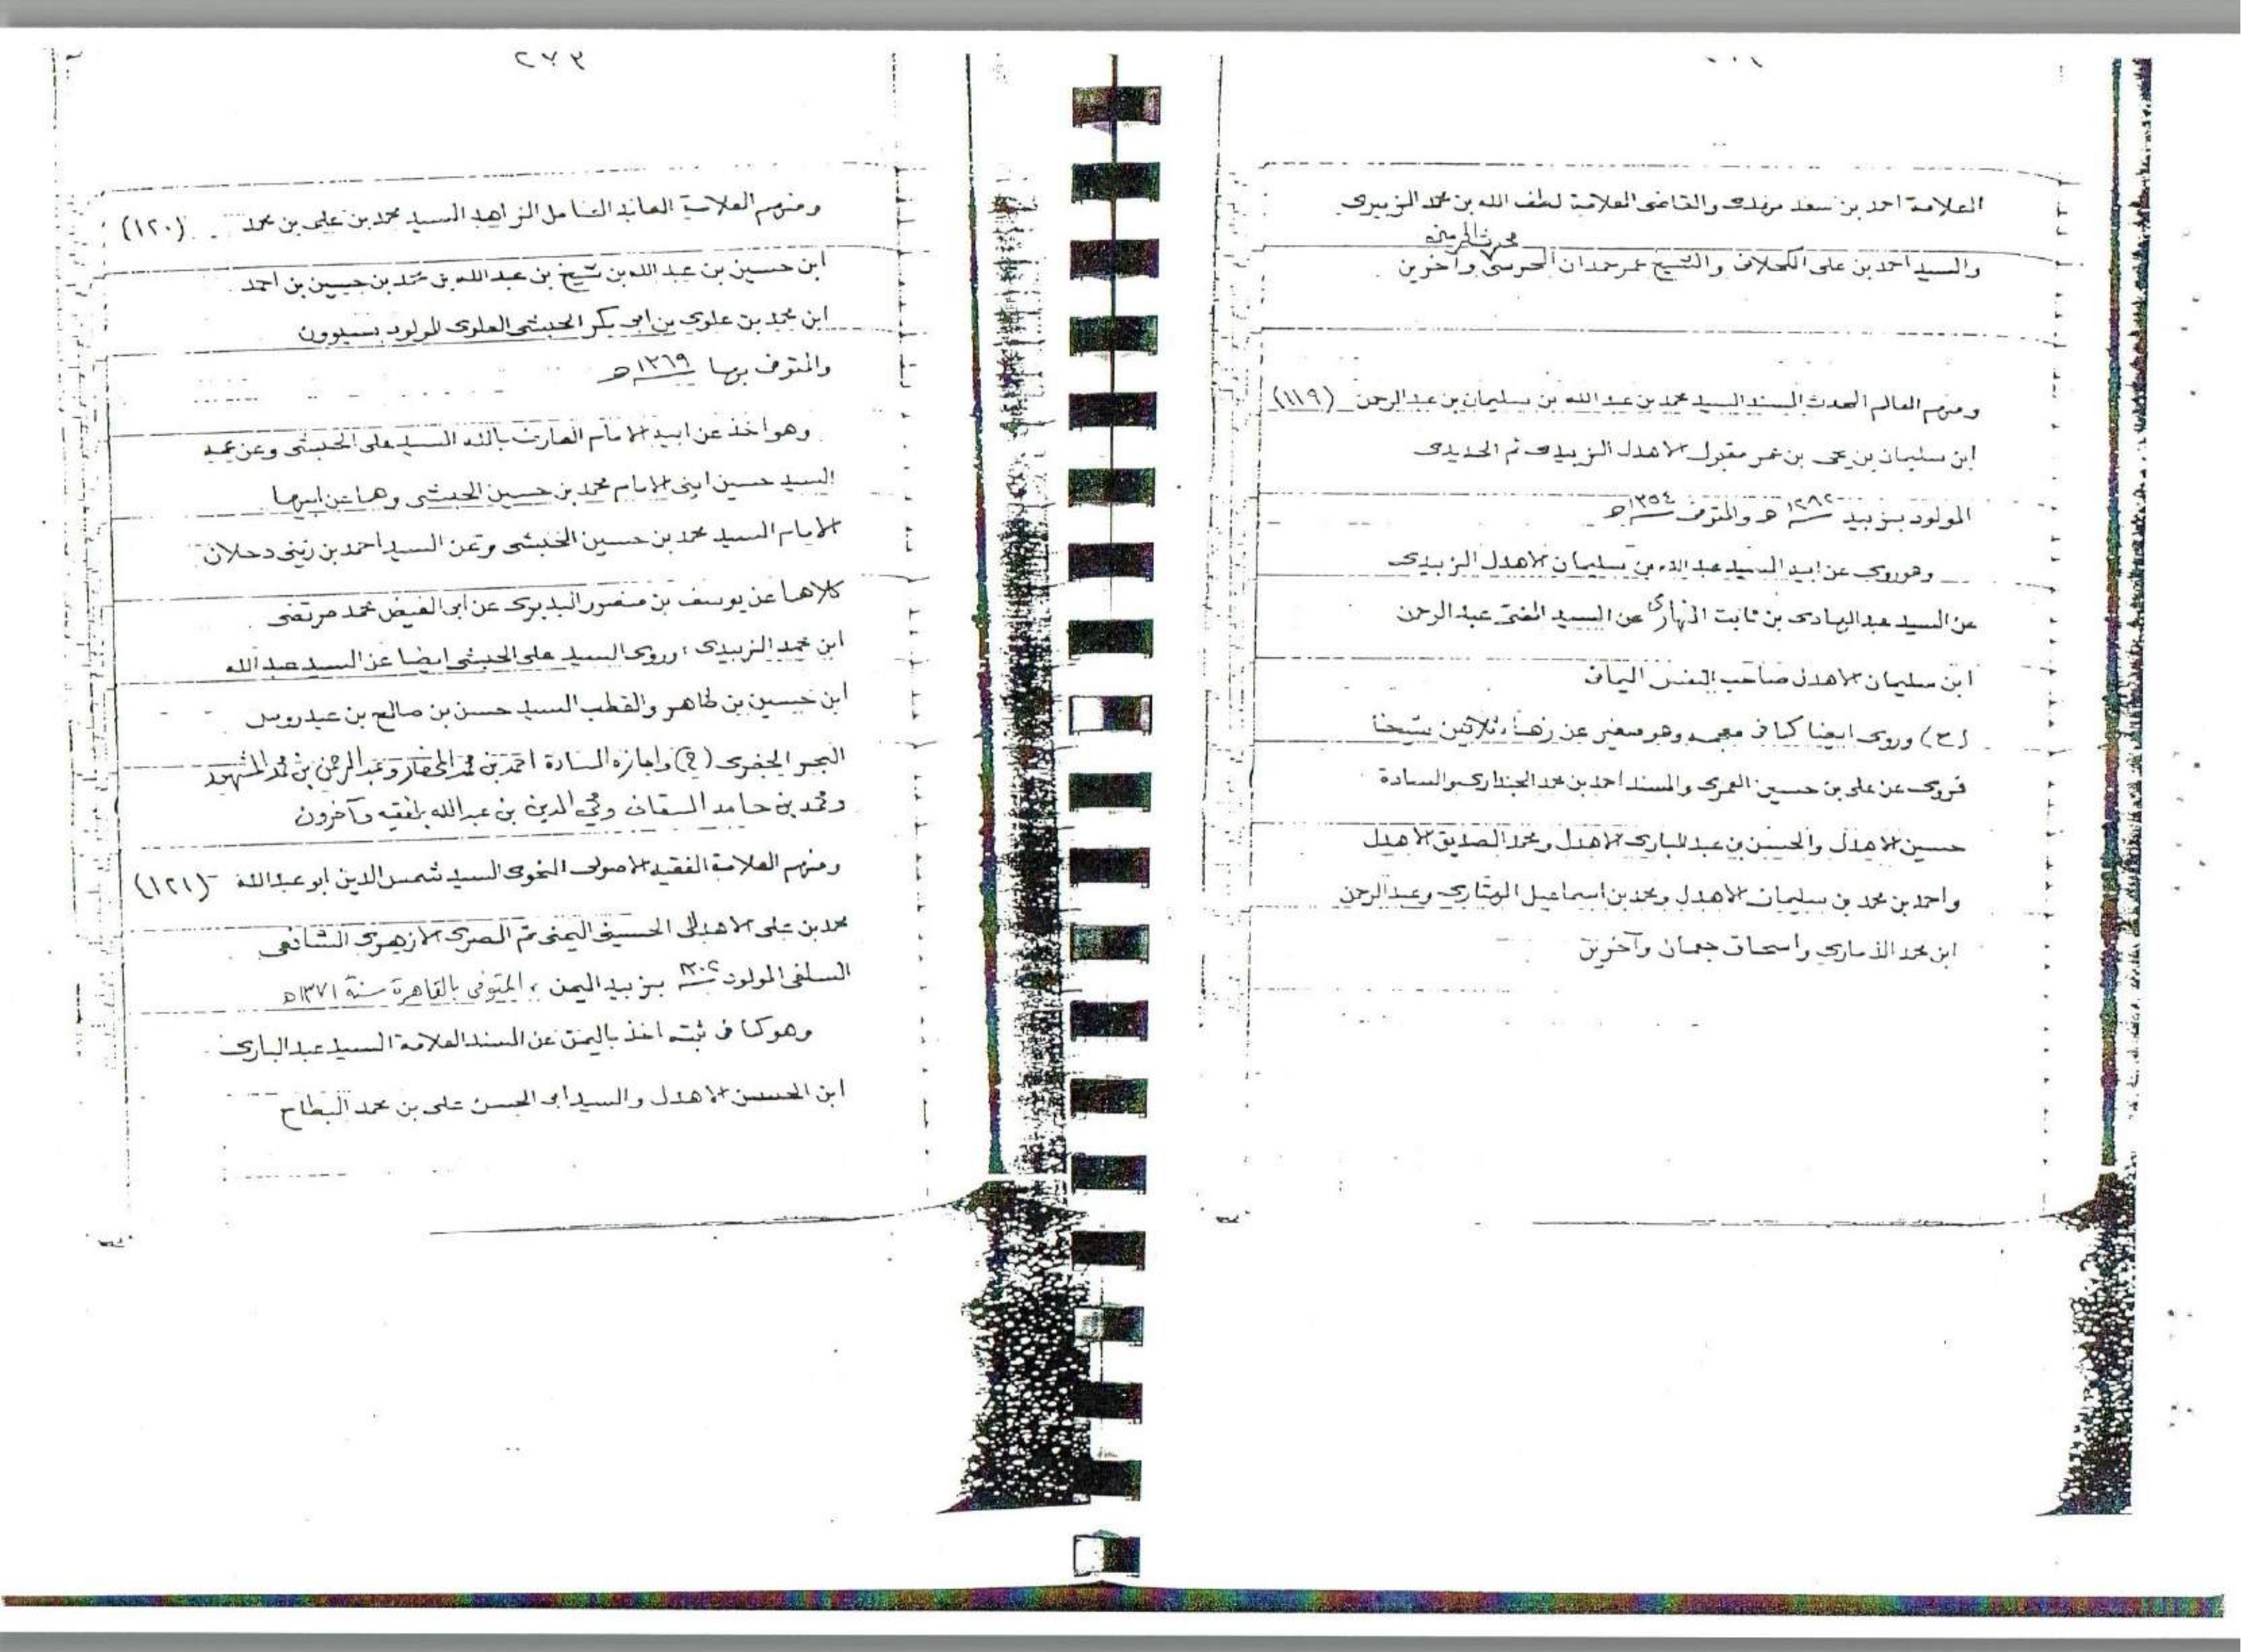 العلامة احمد بن سعد مرفدى والقاضى العلامة لطف الله بن محمد الزبيرى
محرث الحرمين
والسيد احمد بن على الكحلانى والشيخ عمر حمدان المحرسى وآخرين
ومنهم العالم المحدث المسند السيد محمد بن عبد الله بن سليمان بن عبد الرحمن (١١٩)
ابن سليمان بن يحى بن عمر مقبول الاهدل الزبيدى ثم الحديدى
المولود بزبيد ١٢٨٢ هـ والمتوفى ١٣٥٤ هـ
وهو روى عن ابيه السيد عبد الله بن سليمان الاهدل الزبيدى
عن السيد عبد الهادى بن ثابت النهارى عن السيد المفتى عبد الرحمن
ابن سليمان الاهدل صاحب النفس اليمانى
(ح) وروى ايضا كما فى معجمه وهو صغير عن زهاء ثلاثين شيخا
فروى عن على بن حسين العمرى والمسند احمد بن محمد الجندارى والسادة
حسين الاهدل والحسن بن عبد البارى الاهدل ومحمد الصديق الاهدل
واحمد بن محمد بن سليمان الاهدل ومحمد بن اسماعيل الهتارى وعبد الرحمن
ابن محمد الذمارى واسحاق جمعان وآخرين
٢٧٣
ومنهم العلامة العابد العامل الزاهد السيد محمد بن على بن محمد (١٢٠)
ابن حسين بن عبد الله بن شيخ بن عبد الله بن محمد بن حسين بن احمد
ابن محمد بن علوى بن ابى بكر الحبشى العلوى المولود بسيوون
والمتوفى بها ١٣٦٩ هـ
وهو اخذ عن ابيه الامام العارف بالله السيد على الحبشى وعن عمه
السيد حسين ابنى الامام محمد بن حسين الحبشى وهما عن ابيهما
الامام السيد محمد بن حسين الحبشى وعن السيد احمد بن زينى دحلان
كلاهما عن يوسف بن منصور البديرى عن ابى الفيض محمد مرتضى
ابن محمد الزبيدى، وروى السيد على الحبشى ايضا عن السيد عبد الله
ابن حسين بن طاهر والقطب السيد حسن بن صالح بن عيدروس
البحر الجفرى (ح) واجازه السادة احمد بن محمد المحضار وعبد الرحمن بن محمد المشهور
ومحمد بن حامد السقاف ومحي الدين بن عبد الله بلفقيه وآخرون
ومنهم العلامة الفقيه الاصولى النحوى السيد شمس الدين ابو عبد الله (١٢١)
محمد بن على الاهدلى الحسينى اليمنى ثم المصرى الازهرى الشافعى
السلفى المولود ١٣٠٢ بزبيد اليمن، المتوفى بالقاهرة سنة ١٣٧١ هـ
وهو كما فى ثبته اخذ باليمن عن المسند العلامة السيد عبد البارى
ابن الحسن الاهدل والسيد ابو الحسن على بن محمد البطاح